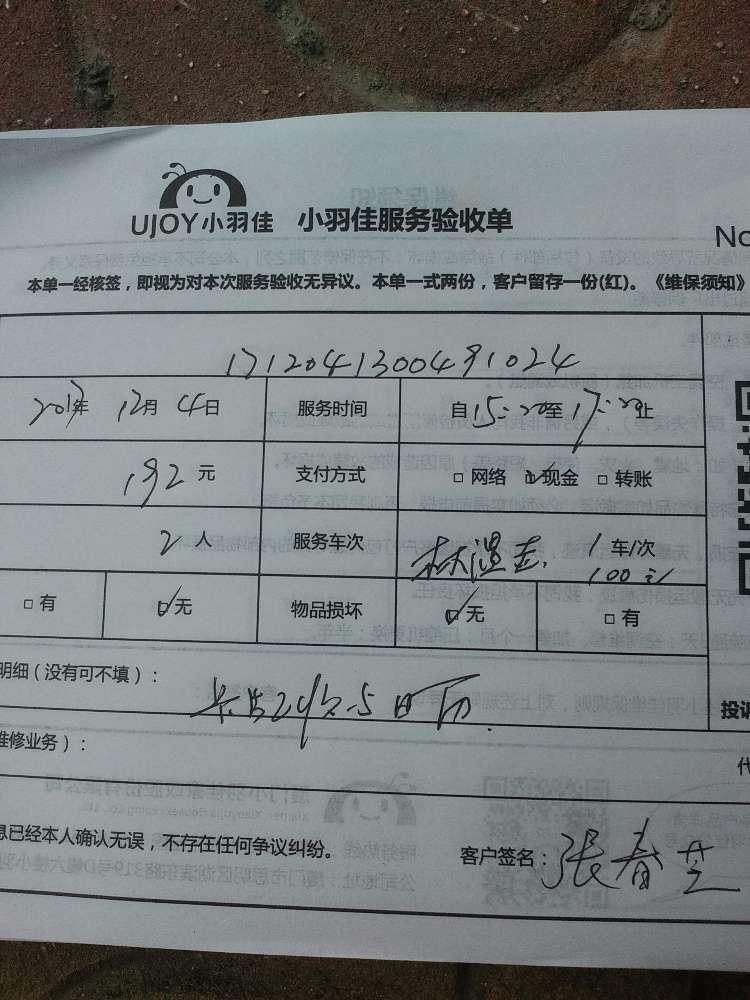 UJOY小羽佳 小羽佳服务验收单
No
本单一经核签，即视为对本次服务验收无异议。本单一式两份，客户留存一份(红)。《维保须知》
1712041300491024
2017年 12月 4日 服务时间 自15:20至17:20止
192元 支付方式 □ 网络 ☑现金 □ 转账
2人 服务车次 1 车/次
100元
□ 有 ☑无 物品损坏 ☑无 □ 有
明细（没有可不填）：
投诉
维修业务）：
代
息已经本人确认无误，不存在任何争议纠纷。 客户签名：张春芝